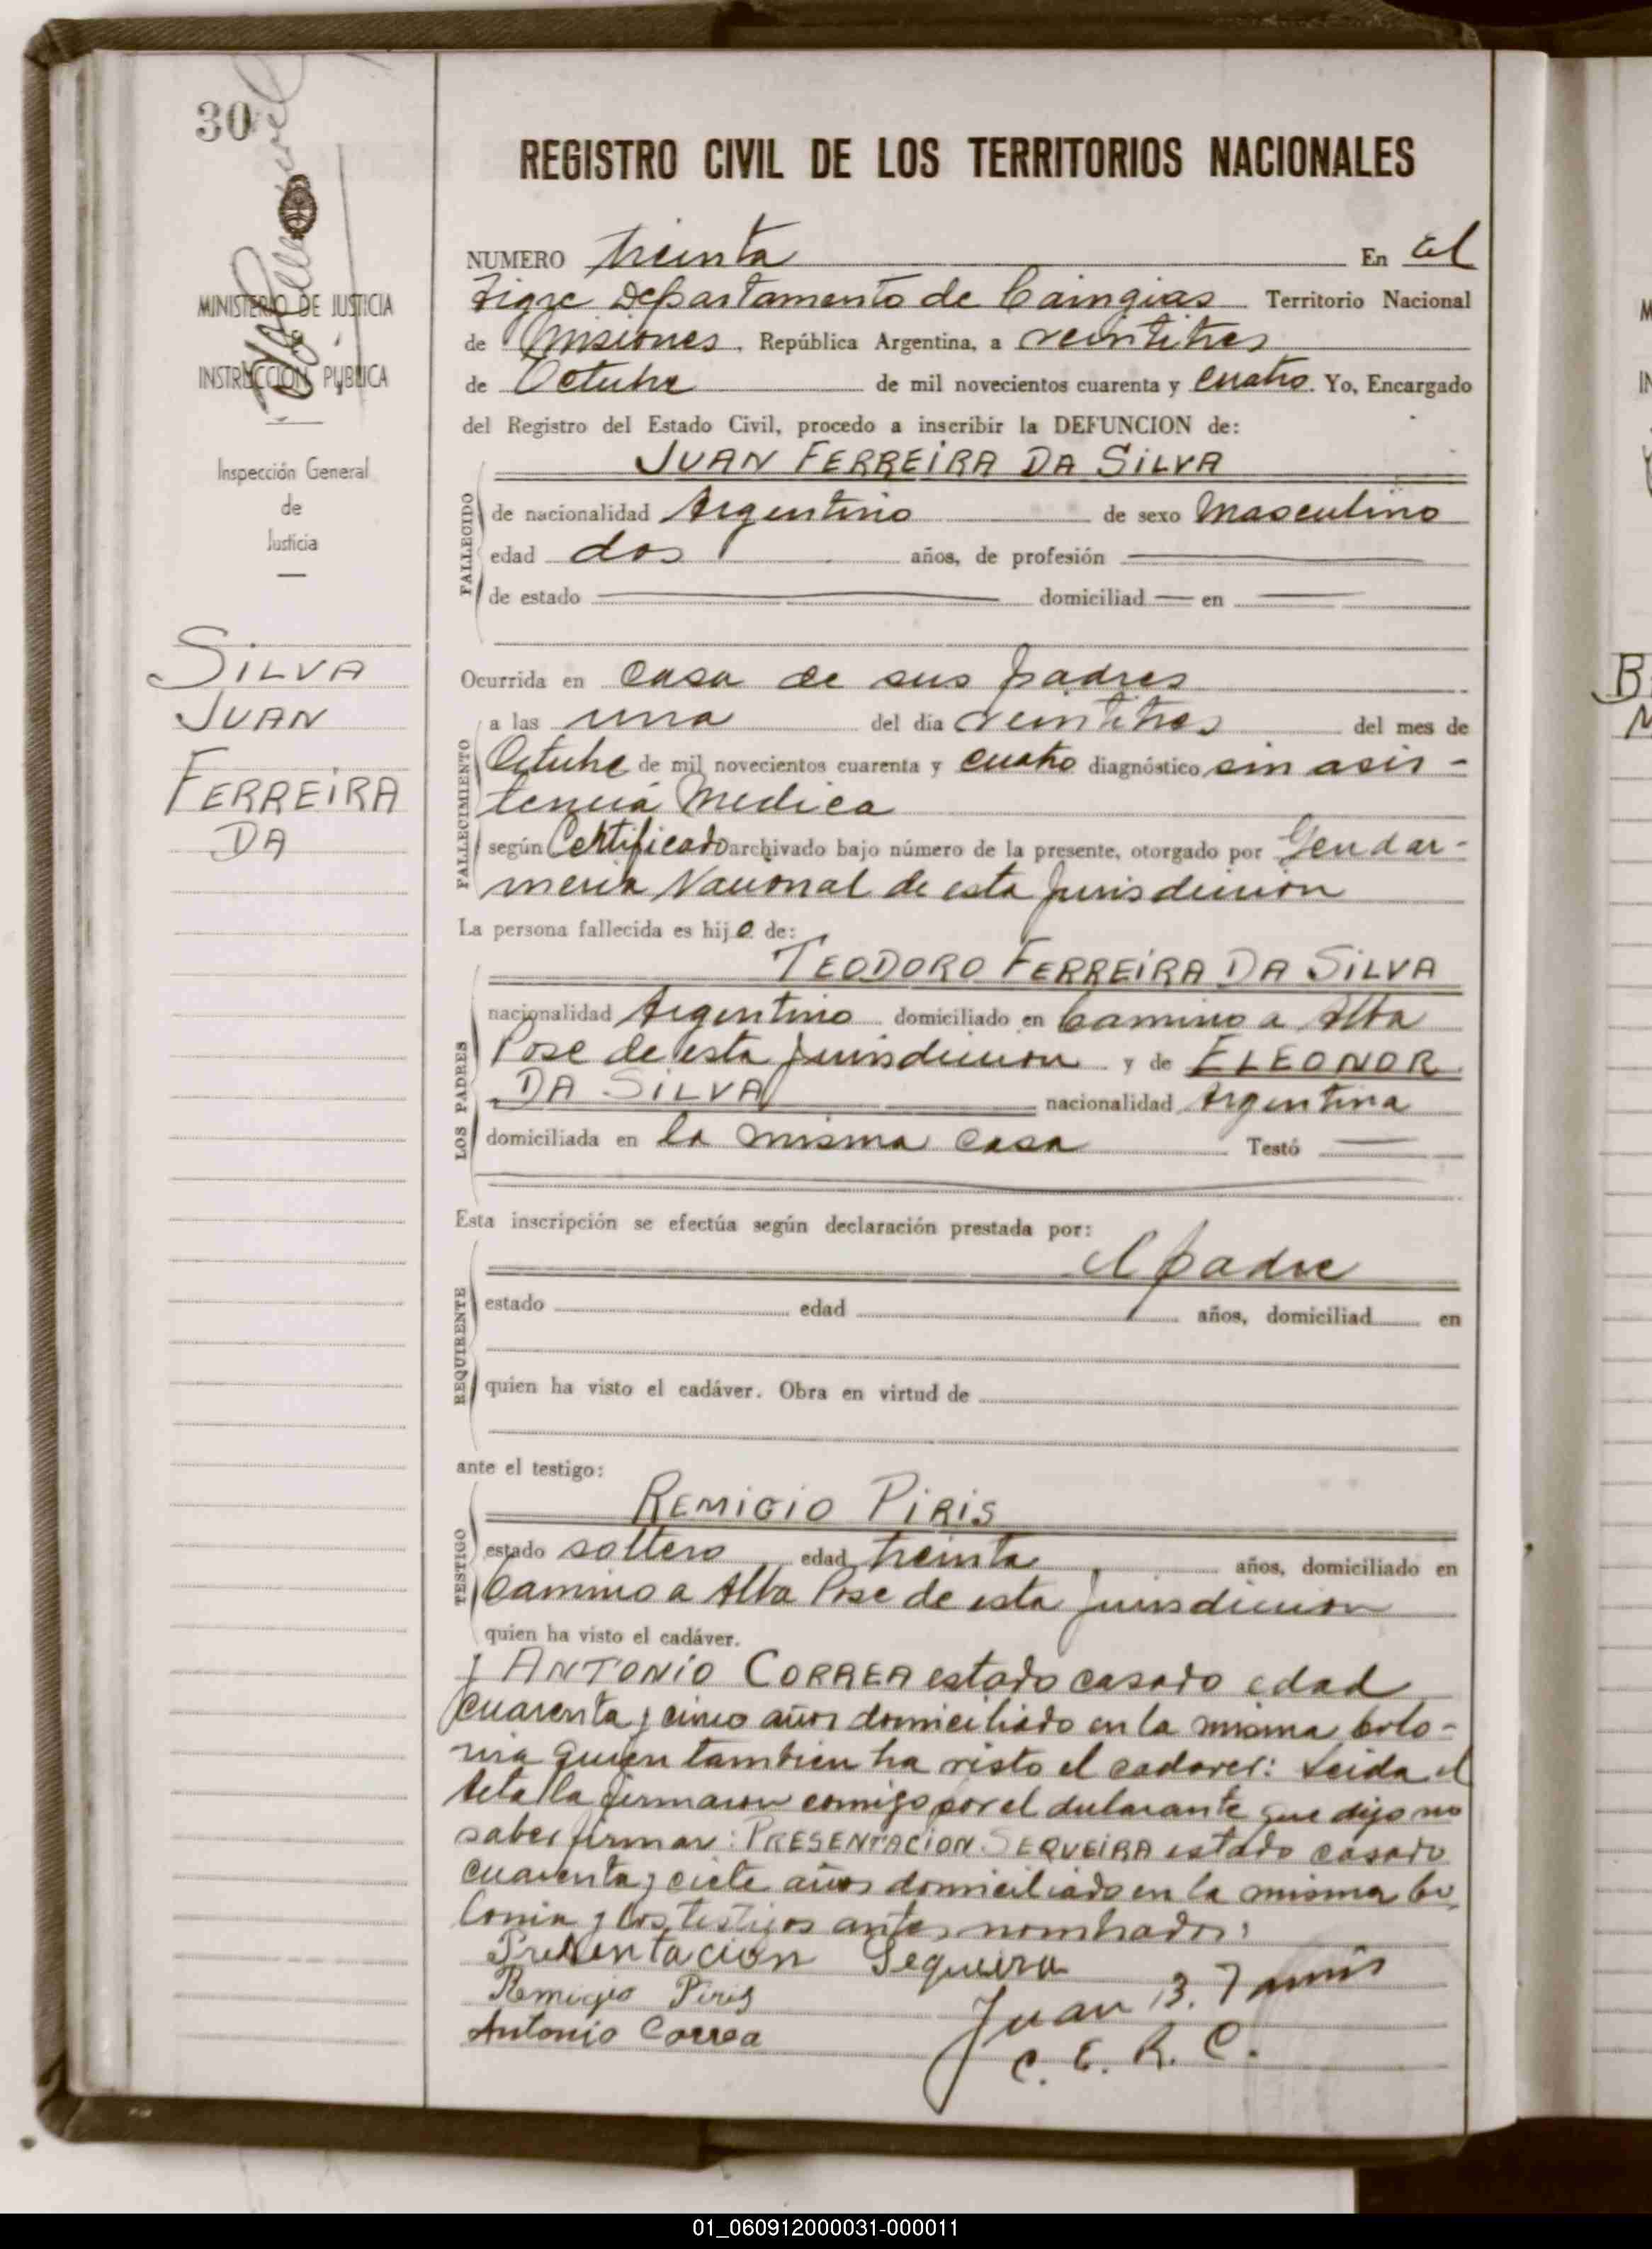 30
MINISTERIO DE JUSTICIA
E
INSTRUCCION PUBLICA
Inspección General
de
Justicia
SILVA
JUAN
FERREIRA
DA
REGISTRO CIVIL DE LOS TERRITORIOS NACIONALES
NUMERO treinta En El
Tigre Departamento de Caingias Territorio Nacional
de Misiones, República Argentina, a veintitres
de Octubre de mil novecientos cuarenta y cuatro. Yo, Encargado
del Registro del Estado Civil, procedo a inscribir la DEFUNCION de:
JUAN FERREIRA DA SILVA
FALLECIDO
de nacionalidad Argentino de sexo Masculino
edad dos años, de profesión
de estado domiciliad en
Ocurrida en casa de sus padres
FALLECIMIENTO
a las una del día veintitres del mes de
Octubre de mil novecientos cuarenta y cuatro diagnóstico sin asis-
tencia Medica
según Certificado archivado bajo número de la presente, otorgado por Gendar-
meria Nacional de esta Jurisdicion
La persona fallecida es hijo de:
TEODORO FERREIRA DA SILVA
LOS PADRES
nacionalidad Argentino domiciliado en Camino a Alba
Pose de esta Jurisdicion y de ELEONOR
DA SILVA nacionalidad Argentina
domiciliada en la misma casa Testó
Esta inscripción se efectúa según declaración prestada por:
el padre
REQUIRENTE
estado edad años, domiciliad en
quien ha visto el cadáver. Obra en virtud de
ante el testigo:
REMIGIO PIRIS
TESTIGO
estado soltero edad treinta años, domiciliado en
Camino a Alba Pose de esta Jurisdicion
quien ha visto el cadáver.
y ANTONIO CORREA estado casado edad
cuarenta y cinco años domiciliado en la misma Colo-
nia quien tambien ha visto el cadaver: Leida el
Acta la firmaron comigo por el declarante que dijo no
saber firmar: PRESENTACION SEQUEIRA estado casado
cuarenta y ciete años domiciliado en la misma Co
lonia y los testigos antes nombrados:
Presentacion Sequeira
Remigio Piris
Antonio Correa
Juan B.
C. E. R. C.
01_060912000031-000011